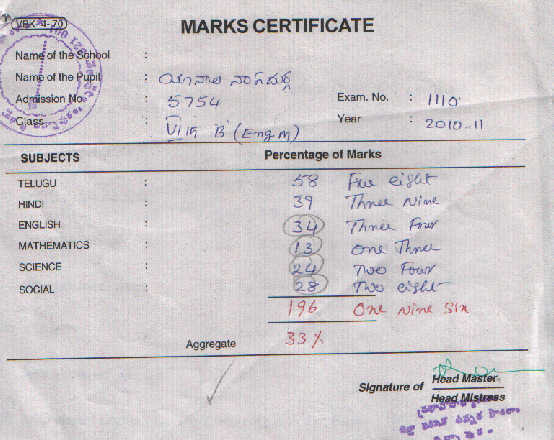 VBK-4-70
MARKS CERTIFICATE
Name of the School :
Name of the Pupil :
Admission No. : 5754 Exam. No. : 1110
Class : VIII B (Eng.m) Year : 2010-11
SUBJECTS Percentage of Marks
TELUGU : 58 Five eight
HINDI : 39 Three Nine
ENGLISH : 34 Three Four
MATHEMATICS : 13 One Three
SCIENCE : 24 Two Four
SOCIAL : 28 Two eight
196 One Nine Six
Aggregate 33%
Signature of Head Master
Head Mistress